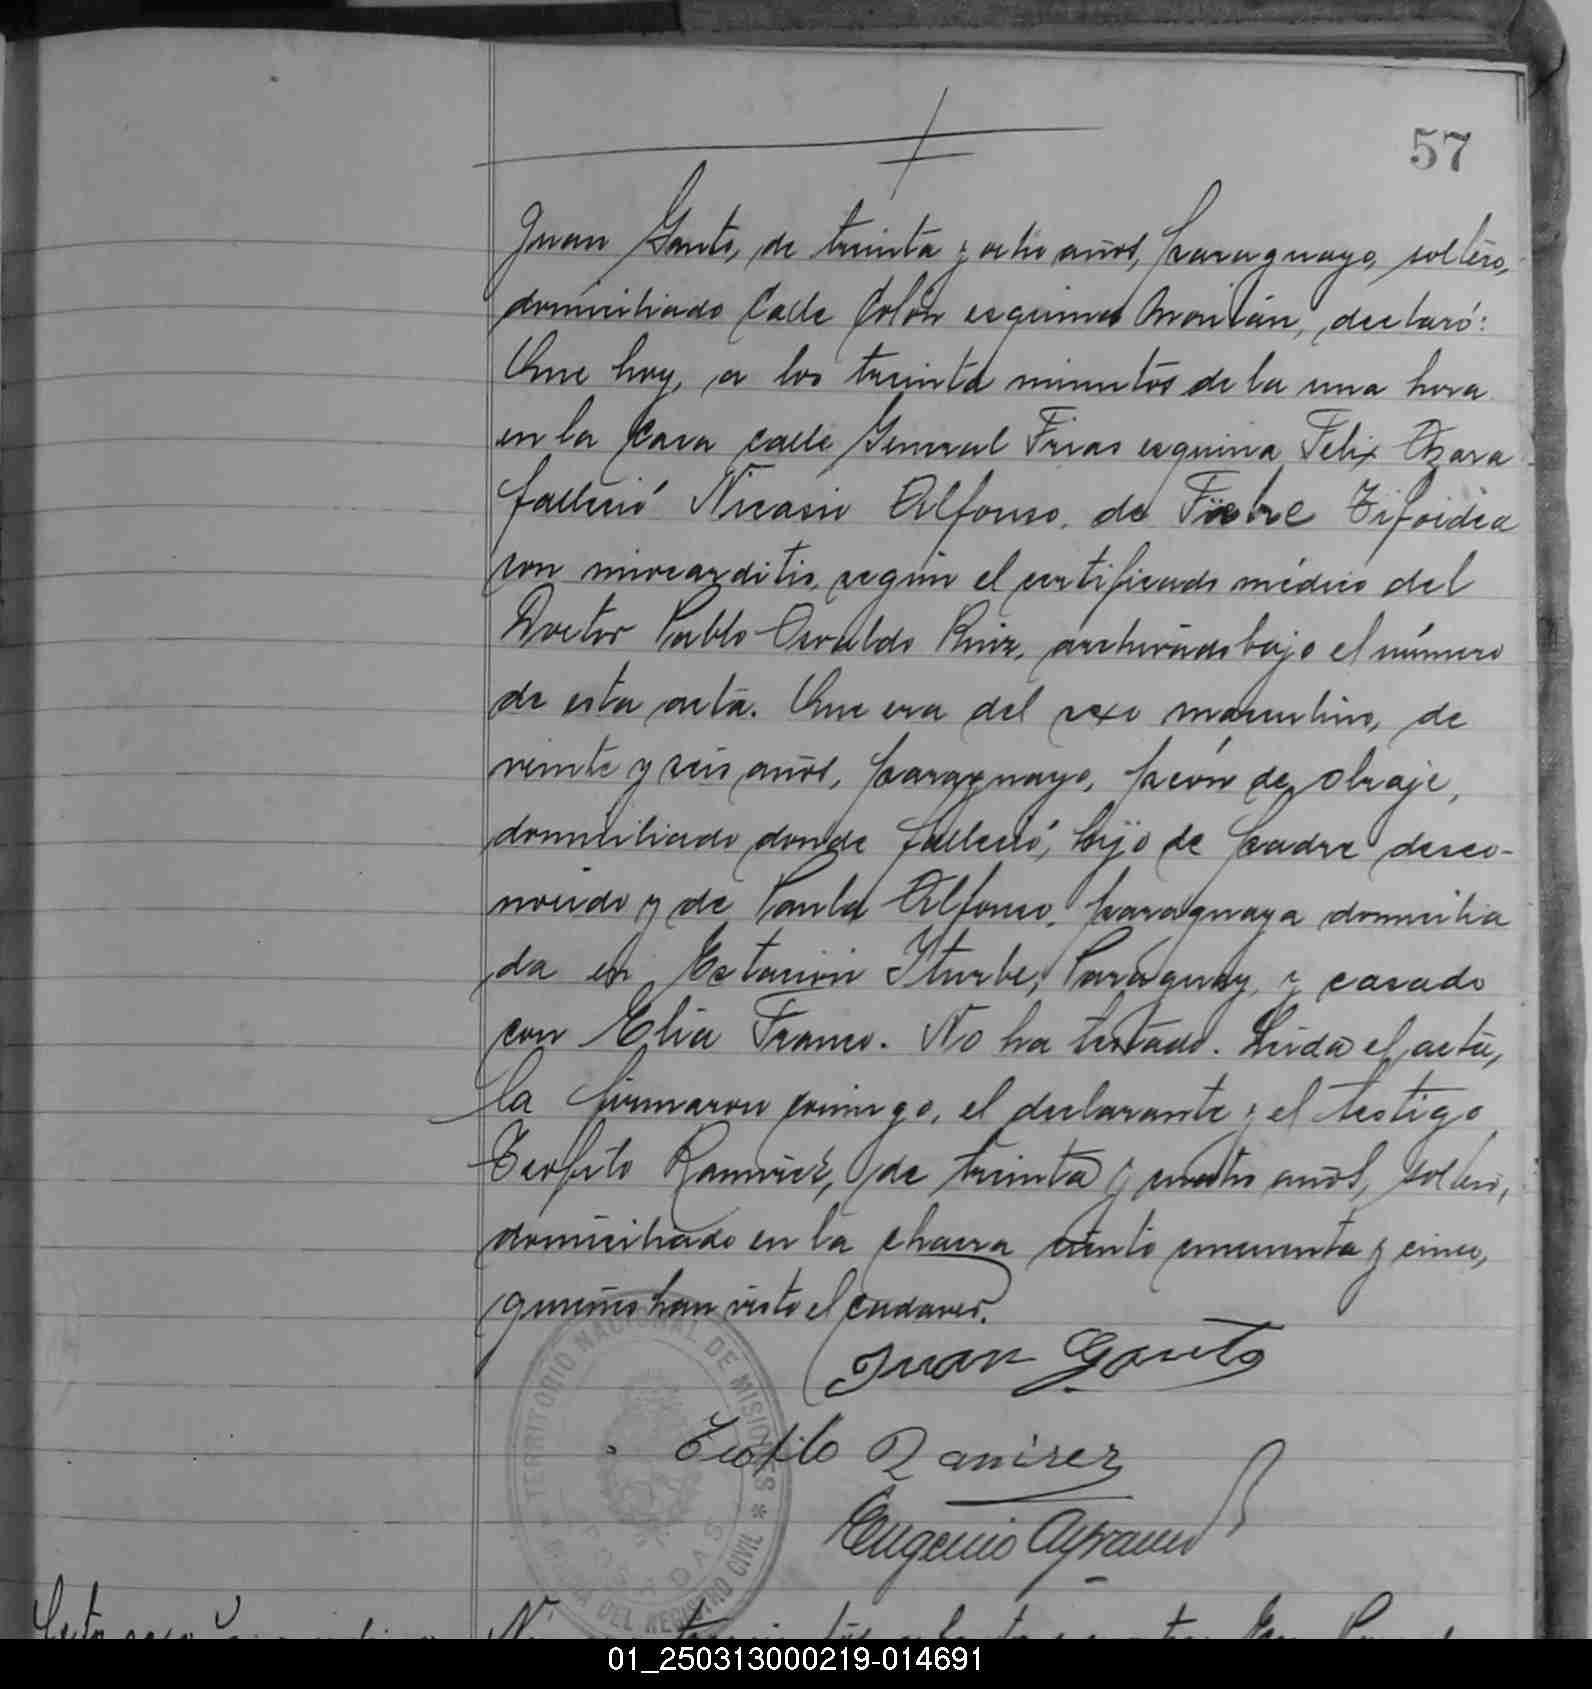 57
Juan Gauto, de treinta y ocho años, paraguayo, soltero,
domiciliado Calle Colón esquina Moritán, declaró:
Que hoy, a los treinta minutos de la una hora
en la Casa calle General Frias esquina Felix Azara
falleció Nicasio Alfonso, de Fiebre Tifoidea
con miocarditis, según el certificado médico del
Doctor Pablo Osvaldo Ruiz, archivado bajo el número
de esta acta. Que era del sexo masculino, de
veinte y seis años, paraguayo, peón de obraje,
domiciliado donde falleció, hijo de padre desco-
nocido y de Paula Alfonso, paraguaya domicilia
da en Estación Iturbe, Paraguay, y casado
con Elia Franco. No ha testado. Leída el acta,
la firmaron conmigo, el declarante y el testigo
Teofilo Ramirez, de treinta y cuatro años, soltero,
domiciliado en la chacra ciento cincuenta y cinco,
quienes han visto el cadaver.
Juan Gauto
Teofilo Ramirez
Eugenio
TERRITORIO NACIONAL DE MISIONES
DEL REGISTRO CIVIL
POSADAS
01_250313000219-014691